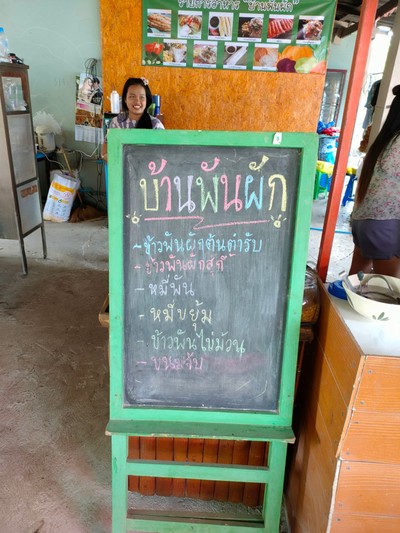 รายการอาหาร บ้านพันผัก
บ้านพันผัก
~ข้าวพันผักต้นตำรับ
-ข้าวพันผักสุกี้
-หมี่พัน
-หมี่ขยุ้ม
-ข้าวพันไข่ม้วน
-ขนมจีบ